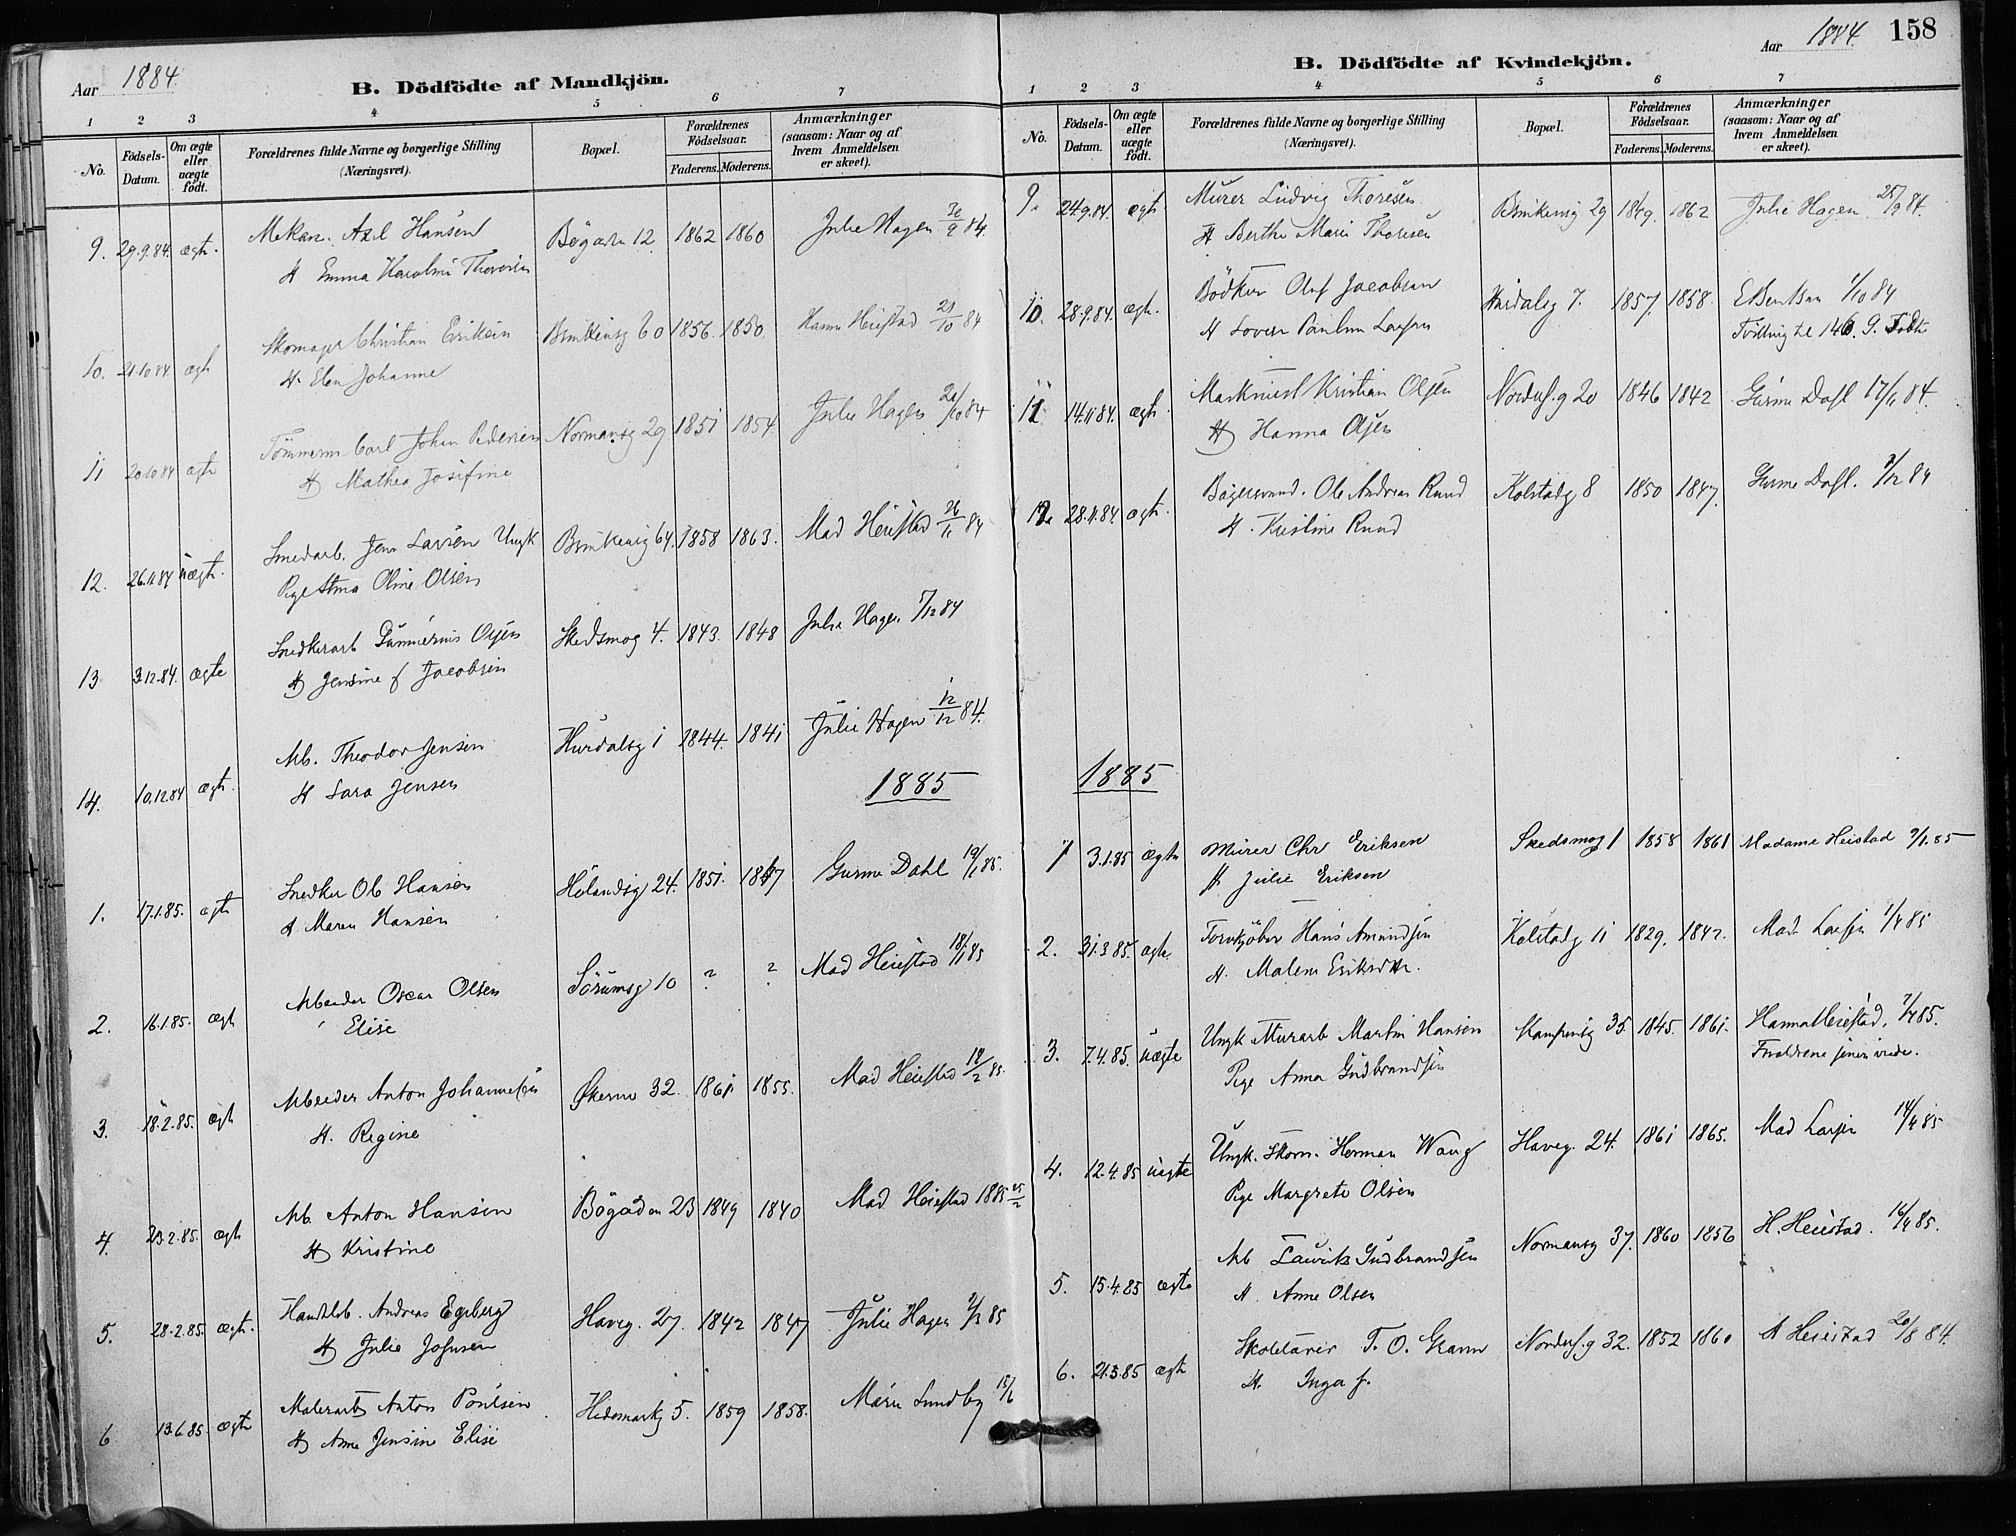 Aar 1884.
B. Dödfödte af Mandkjön.
1 2 3 4 5 6 7
No. Födsels-Datum. Om ægte eller uægte födt. Forældrenes fulde Navne og borgerlige Stilling (Næringsvei). Bopæl. Forældrenes Födselsaar. Faderens. Moderens. Anmærkninger (saasom: Naar og af hvem Anmeldelsen er skeet).
9. 29.9.84. ægte. Mekan. Axel Hansen Bögaden 12 1862 1860 Julie Hagen 30/9 84.
H Emma Karoline Thoresen
10. 21.10.84 ægte Skomager Christian Eriksen 60 1856. 1850. Hanna Heiestad 21/10 84
H. Elen Johanne
11 20.10 84 ægte Tömmerm Carl Johan Pedersen Normansg 29 1851 1854 Julie Hagen 10 84
H Mathea Josefine
12. 26.11.84 uægte. Smedarb. Jens Larsen Ungk 64. 1858 1863. Mad Heiestad 26/11 84
Pige Oline Olsen
13 3.12.84. ægte Snedkerarb Olsen Skedsmog 4. 1843. 1848 Julie Hagen 5/12 84
H Jensine f Jacobsen
14. 10.12.84 ægte. Arb. Theodor Jensen Hurdalsg 1 1844. 1841 Julie Hagen 12/12 84.
H Sara Jensen
1885
1. 17.1.85. ægte Snedker Ole Hansen Hölandsg 24. 1851. 1847 Gurine Dahl 19/1 85.
H Maren Hansen
2. 16.1.85. ægte Arbeider Oscar Olsen Sörumsg 10 ? ? Mad Heiestad 18/1 85
Elise
3. 18.2.85. ægte Arbeider Anton Johannesen Økernv 32. 1861. 1855. Mad Heiestad 18/2 85.
H. Regine
4. 23.2.85. ægte Arb Anton Hansen Bögaden 23 1849 1840 Mad Heiestad 1885 25/2
H Kristine
5. 28.2.85. ægte. Andreas Egeberg Haveg. 27. 1842 1847 Julie Hagen 2/3 85
H Julie
6 13.6.85 ægte Malerarb Anton Poulsen Hedemarkg 5. 1859 1858. Marie Lundby 15/6
H Anne Jensine Elise
Aar 1884. 158
B. Dödfödte af Kvindekjön.
1 2 3 4 5 6 7
No. Födsels-Datum. Om ægte eller uægte födt. Forældrenes fulde Navne og borgerlige Stilling (Næringsvei). Bopæl. Forældrenes Födselsaar. Faderens. Moderens. Anmærkninger (saasom: Naar og af hvem Anmeldelsen er skeet).
9. 24.9.84. ægte Murer Ludvig Thoresen 29 1849. 1862 Julie Hagen 25/9 84.
H Berthe Marie Thoresen
10. 28.9.84. ægte. Bödker Oluf Jacobsen Hurdalsg 7. 1857. 1858. E Bentsen 1/10 84
H Lovise Pauline Larsen Tvilling til 146. 9.
11 14.11.84. ægte Maskinist Kristian Olsen 20 1846 1842 Gurine Dahl 17/11 84.
H Hanna Olsen
12. 28.11.84. ægte. Bögersvend. Ole Andreas Ruud Kolstadg 8 1850 1847. Gurine Dahl. /12 84
H. Kristine Ruud
1885
1 3.1.85 ægte Murer Chr Eriksen Skedsmog 1 1858 1861 Madame Heiestad 9/1.85
H Julie Eriksen
2. 31.3.85. ægte Hans Amundsen Kolstadg 11 1829. 1842. Mad Larsen 1/4 85
H. Malene Eriksdtr.
3. 7.4.85. uægte Ungk Murarb Martin Hansen Kampensg 35. 1845. 1861. Hanna Heiestad. 7/4 85.
Pige Anna Gudbrandsen Forældrene
4. 12.4.85 uægte Ungk. Skom. Herman Wang Haveg. 24. 1861 1865. Mad Larsen 14/4 85
Pige Margrete Olsen
5. 15.4.85 ægte Arb Laurits Gudbrandsen Normansg 37. 1860 1856 H. Heiestad. 16/4 85.
H. Anne Olsen
6. 21.3.85 ægte T. O. 32. 1852 1860 H Heiestad 84.
H. Inga f.